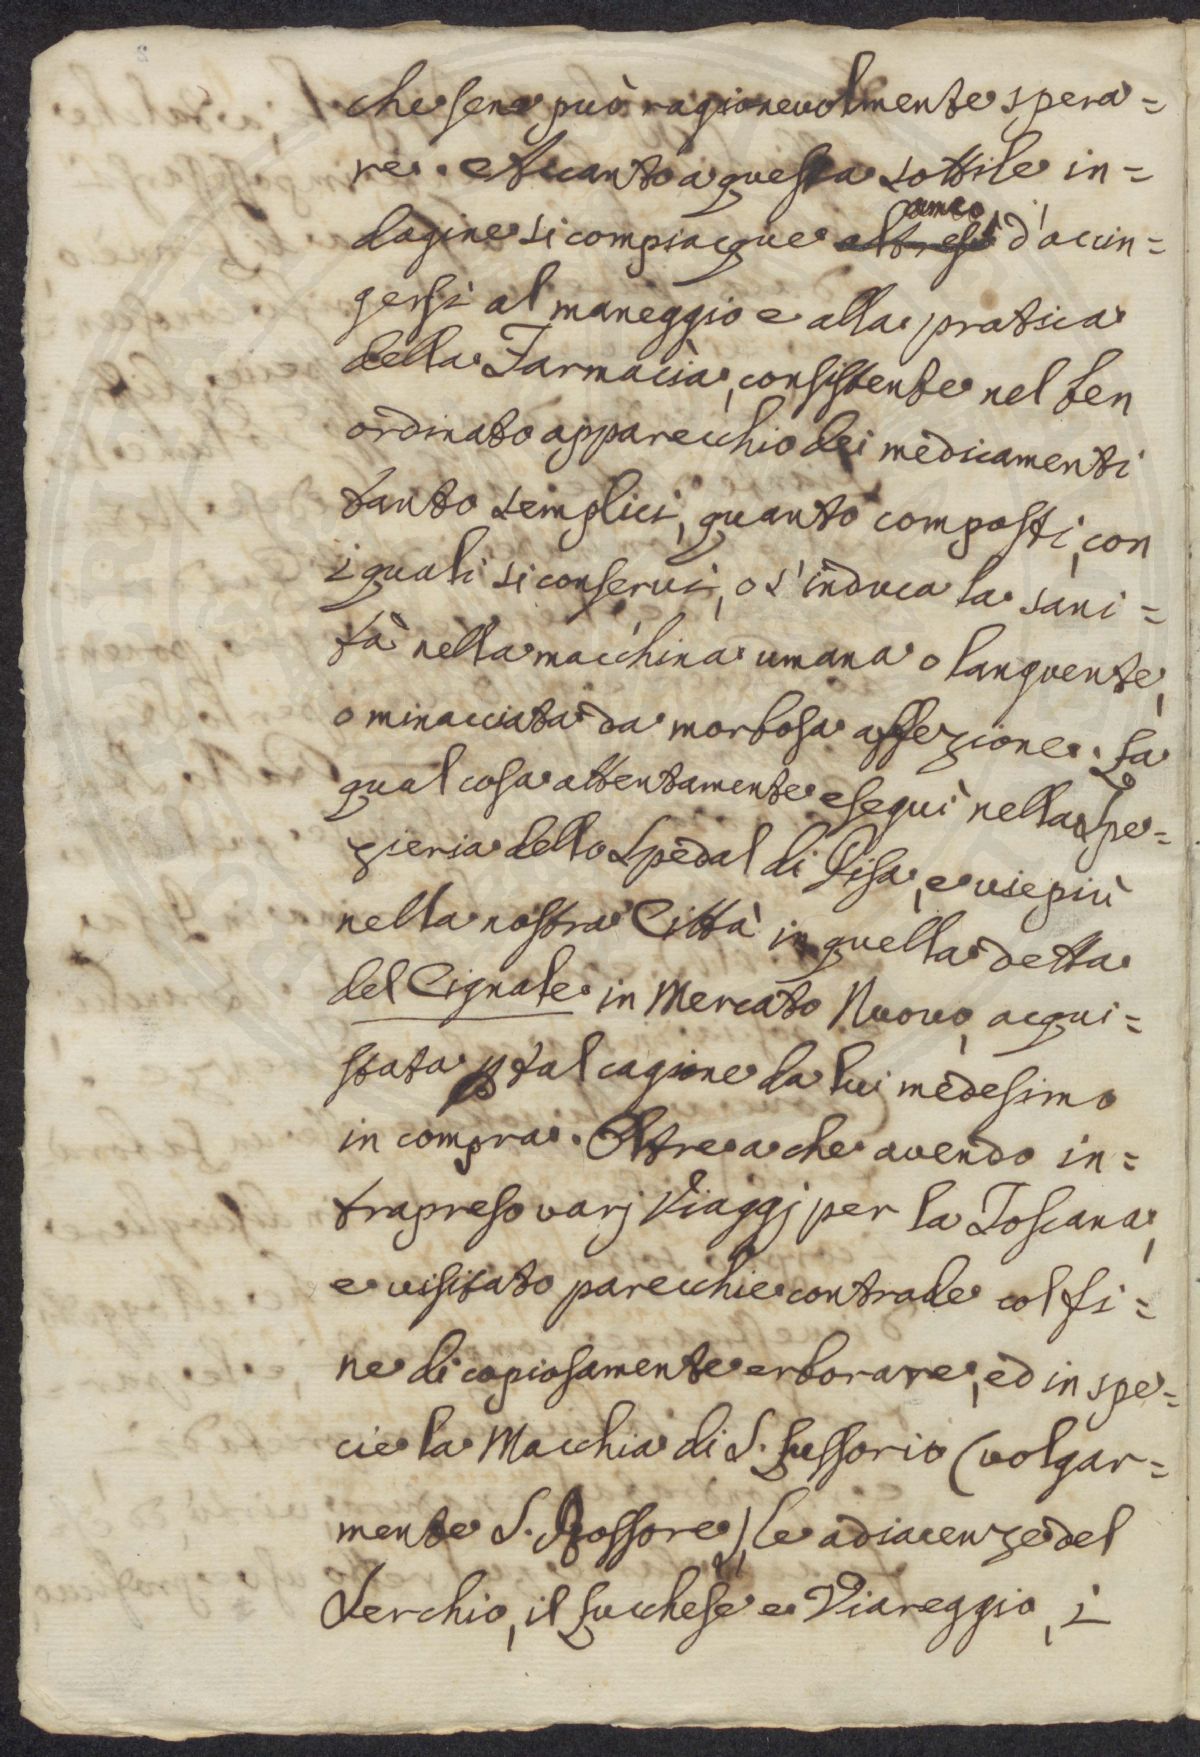 che sene può ragionevolmente spera=
re. Accanto a questa sottile in=
dagine si compiacque altresì anco d'accin=
gersi al maneggio e alla pratica
della Farmacìa, consistente nel ben
ordinato apparecchio dei medicamenti
tanto semplici, quanto composti, con
i quali si conservi, o s'induca la sani=
tà nella macchina umana o languente,
o minacciata da morbosa affezione. La
qual cosa attentamente eseguì nella Spe=
zieria dello Spedal di Pisa, e viepiù
nella nostra Città in quella detta
del Cignale in Mercato Nuovo, acqui=
stata p tal cagione da lui medesimo
in compra. Oltre a che avendo in=
trapreso varj Viaggj per la Toscana,
e visitato parecchie contrade col fi=
ne di copiosamente erborare, ed in spe=
cie la Macchia di S. Lussorio (volgar=
mente S. Rossore), le adiacenze del
Serchio, il Lucchese e Viareggio, i